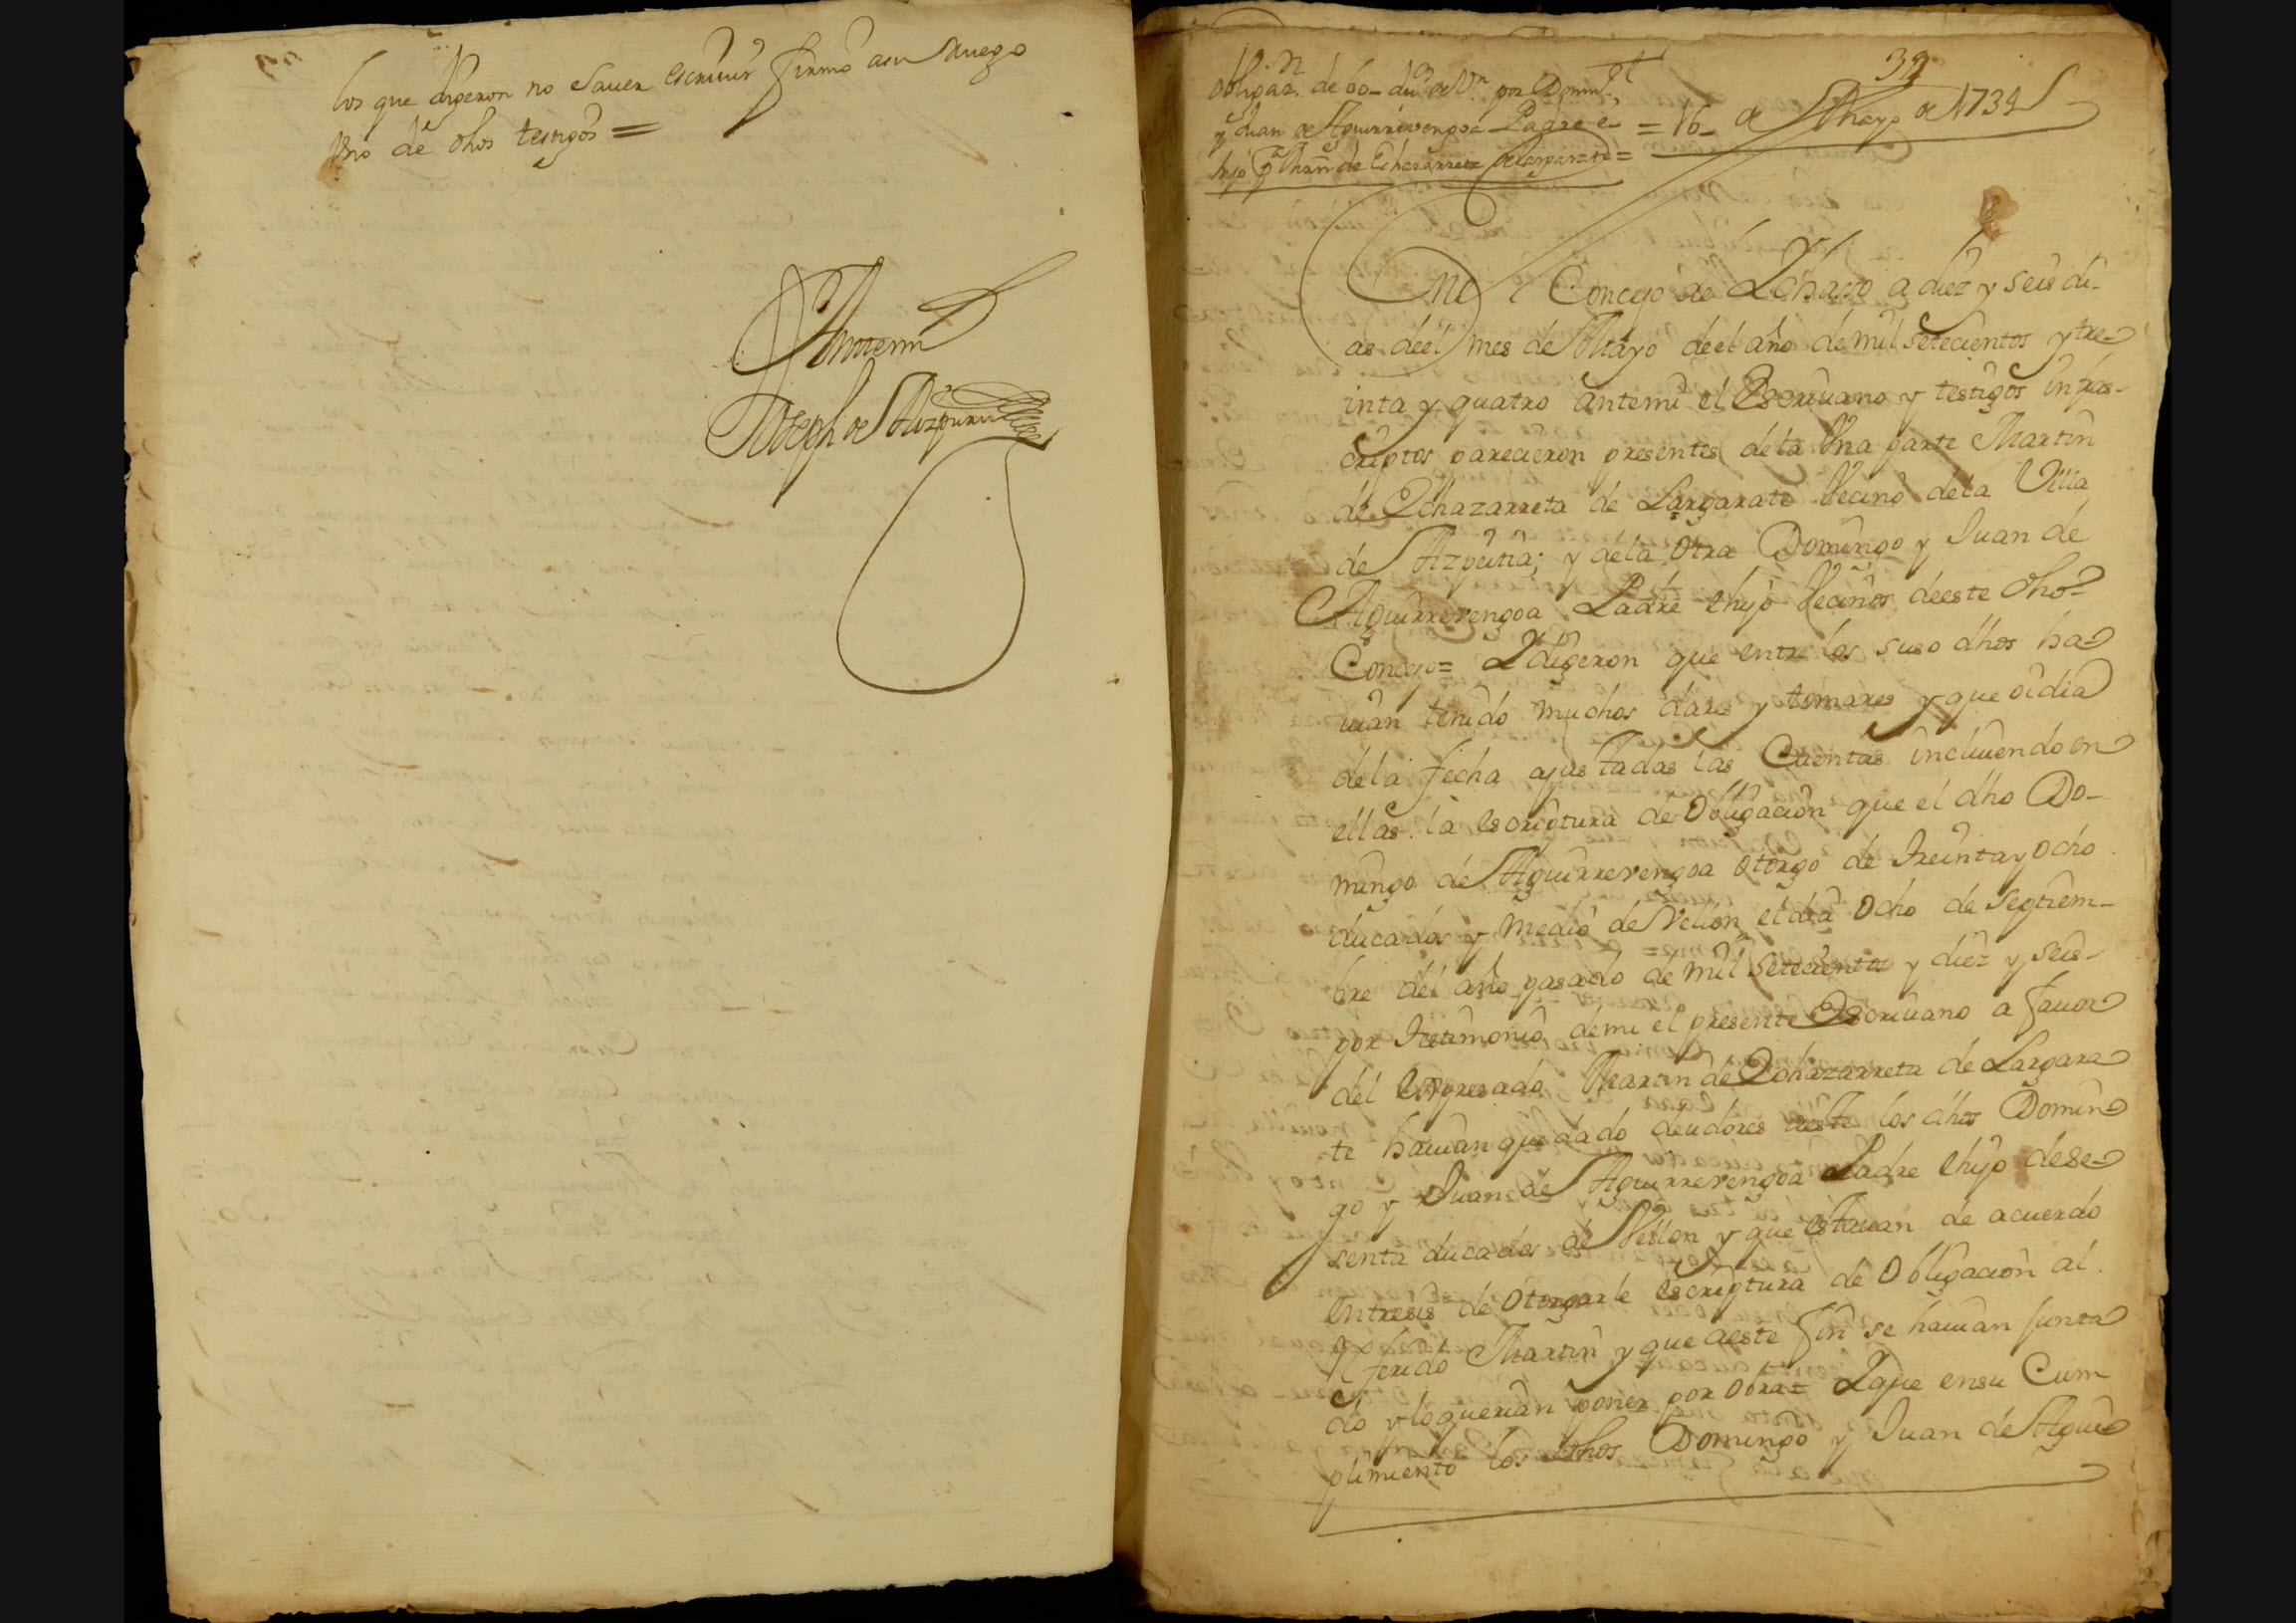 los que dixeron no Saver escriuir firmo a su Ruego
Uno de dhos testigos =
Ante mi
Joseph de Aizpuru
39
Obligaz.n de 60 du.s de V.n por Doming.o
y Juan de Aguirrevengoa Padre e
hijo p.a Mrn de Echazarreta de Largarate =
= 16 de Mayo de 1734
En el Concejo de Echasso a diez y seis di-
as de el mes de Mayo de el año de mil setecientos y tre-
inta y quatro ante mi el Escriuano y testigos infras-
criptos parecieron presentes de la Una parte Martin
de Echazarreta de Largarate Vecino de la Villa
de Azpeitia; y de la Otra Domingo y Juan de
Aguirrevengoa Padre e hijo Vecinos de este dho
Concejo = E digeron que entre los suso dhos ha-
uian tenido muchos dares y tomares y que oi dia
de la fecha ajustadas las Cuentas incluiendo en
ellas la escriptura de Obligacion que el dho Do-
mingo de Aguirrevengoa otorgo de treinta y Ocho
ducados y medio de Vellon el dia Ocho de Septiem-
bre del año pasado de mil setecientos y diez y seis
por testimonio de mi el presente Escriuano a fauor
del expresado Martin de Echazarreta de Largara
te hauian quedado deudores a este los dhos Domin
go y Juan de Aguirrevengoa Padre e hijo de se-
senta ducados de Vellon y que estauan de acuerdo
entre si de otorgarle escriptura de Obligacion al
referido Martin y que a este fin se hauian junta
do y lo querian poner por obra = E que en su Cum
plimiento los dhos Domingo y Juan de Aguir